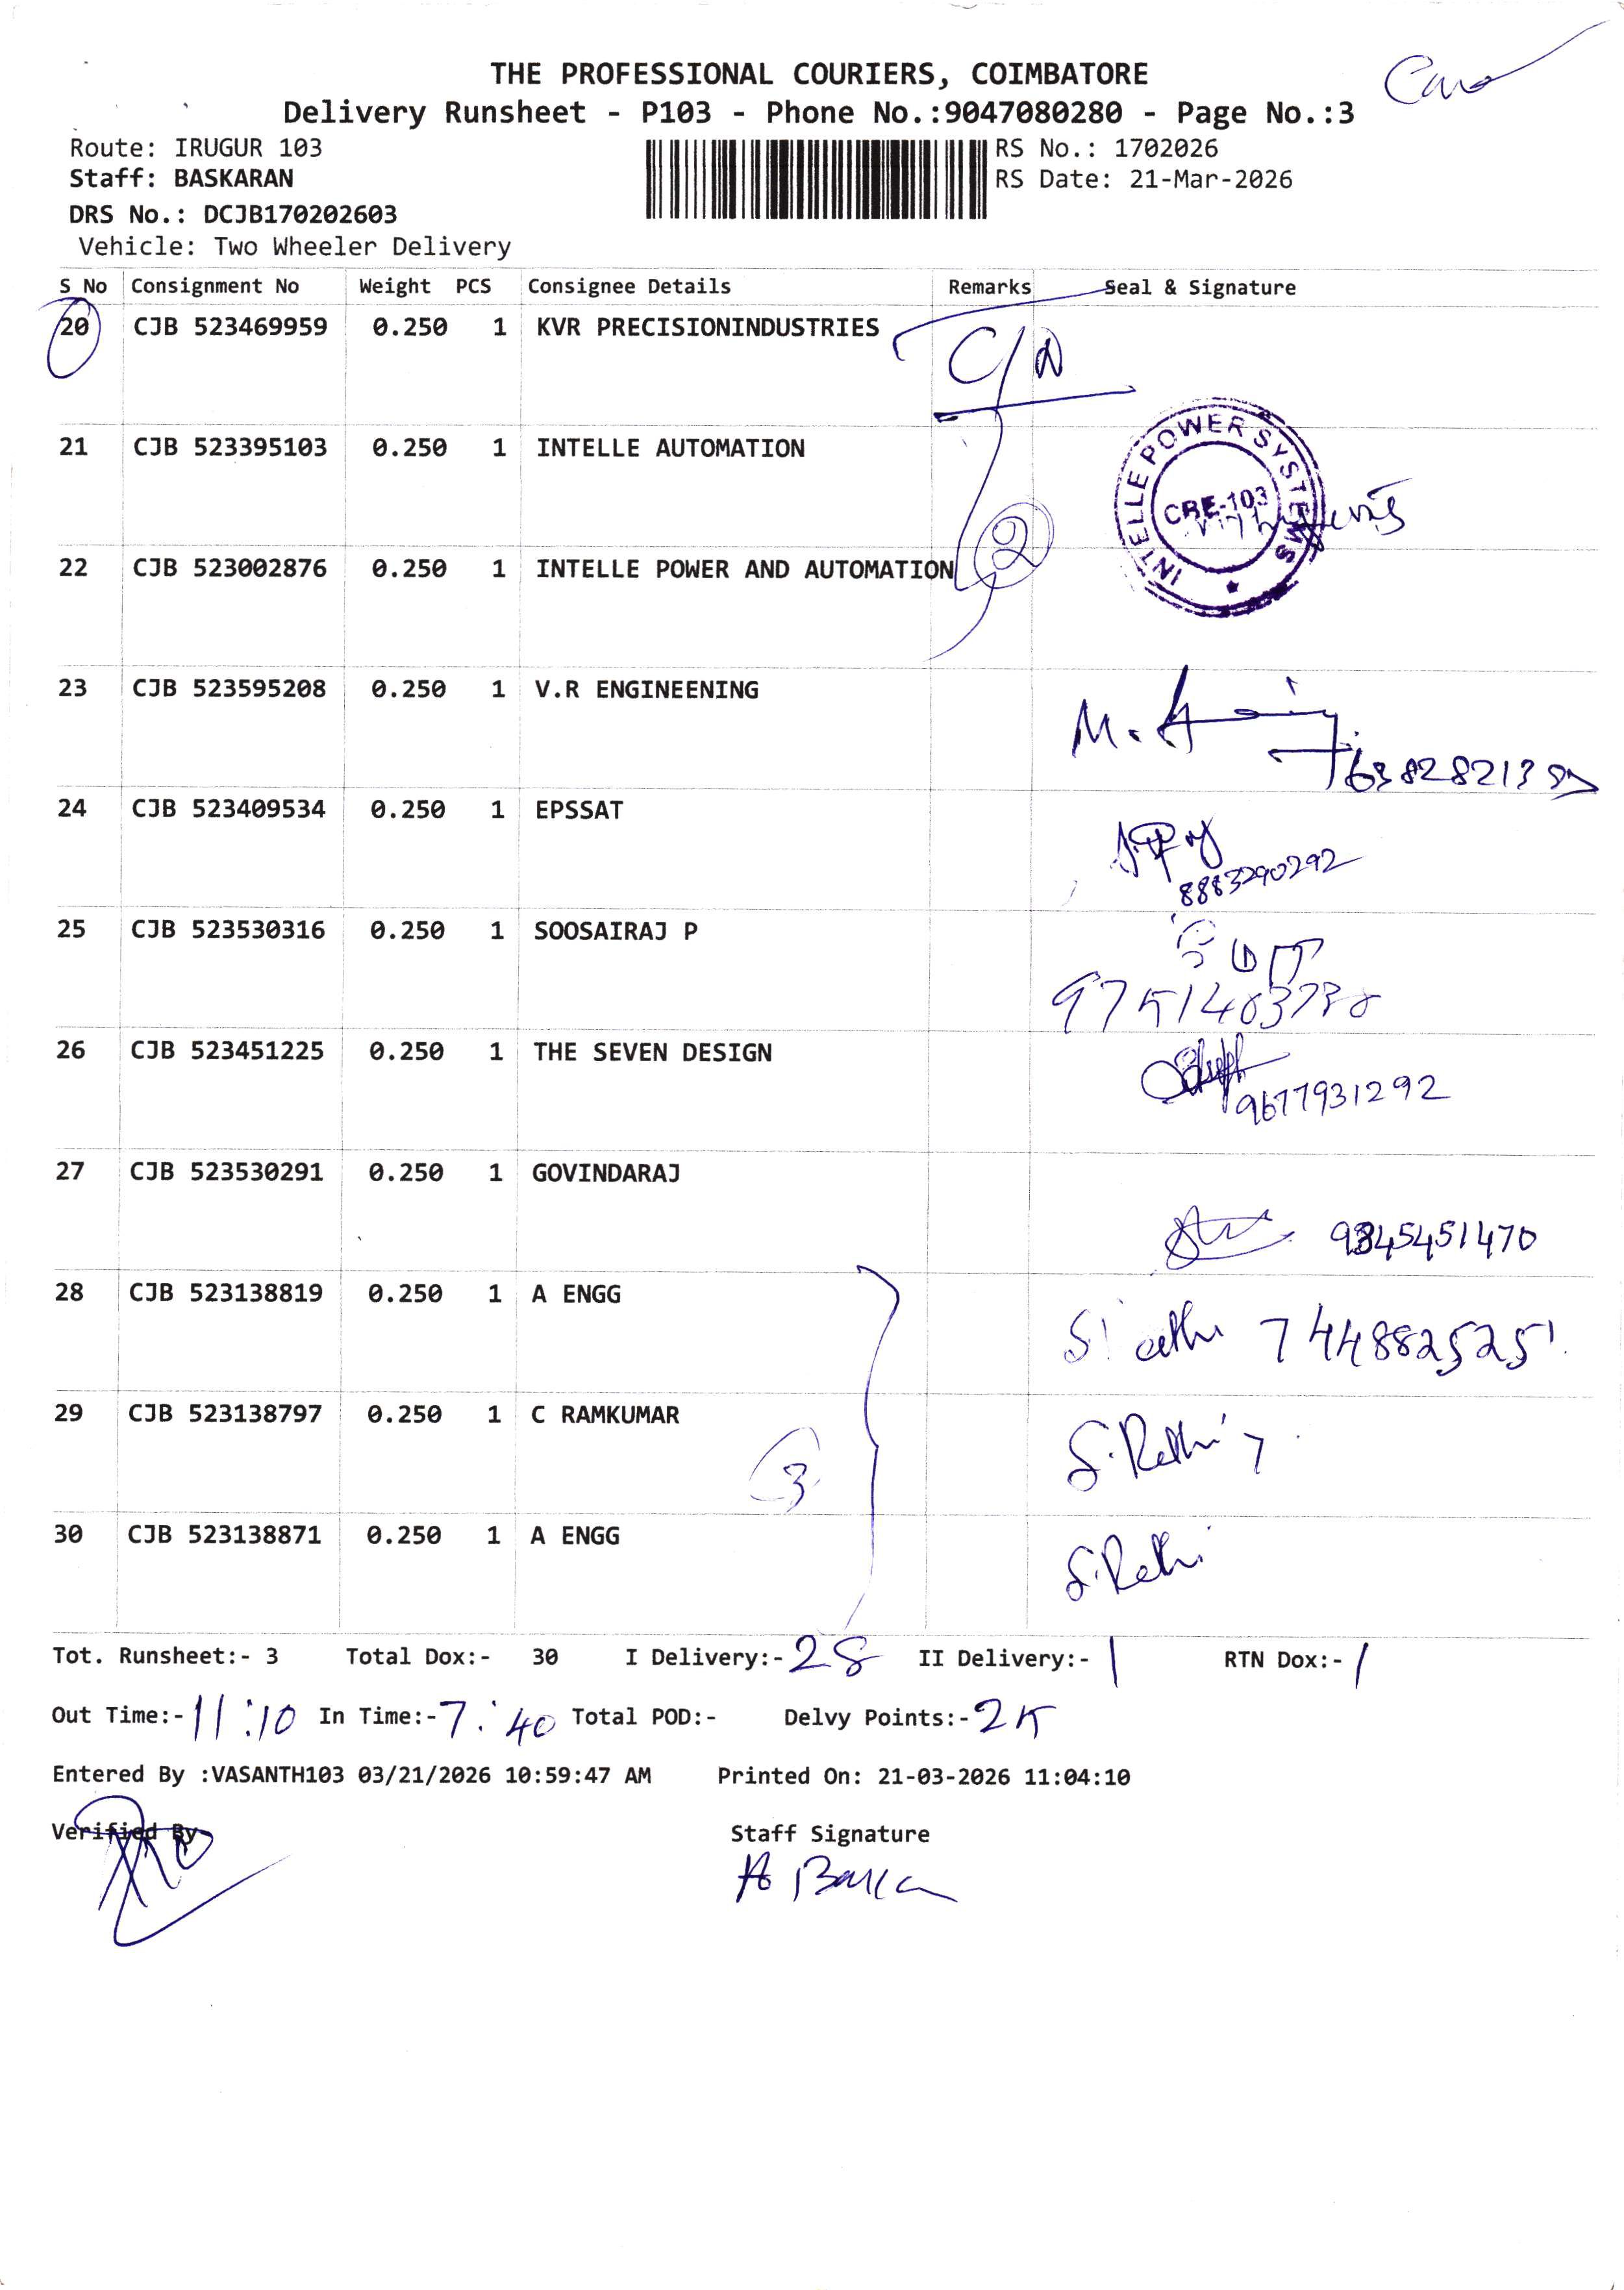 THE PROFESSIONAL COURIERS, COIMBATORE
Delivery Runsheet - P103 - Phone No.:9047080280 - Page No.:3
Route: IRUGUR 103
RS No.: 1702026
Staff: BASKARAN
RS Date: 21-Mar-2026
DRS No.: DCJB170202603
Vehicle: Two Wheeler Delivery
S No Consignment No Weight PCS Consignee Details Remarks Seal & Signature
20 CJB 523469959 0.250 1 KVR PRECISIONINDUSTRIES
21 CJB 523395103 0.250 1 INTELLE AUTOMATION
INTELLE POWER SYSTEMS
CBE-103
2
22 CJB 523002876 0.250 1 INTELLE POWER AND AUTOMATION
23 CJB 523595208 0.250 1 V.R ENGINEENING
24 CJB 523409534 0.250 1 EPSSAT
8883290292
25 CJB 523530316 0.250 1 SOOSAIRAJ P
26 CJB 523451225 0.250 1 THE SEVEN DESIGN
9677931292
27 CJB 523530291 0.250 1 GOVINDARAJ
9345451470
28 CJB 523138819 0.250 1 A ENGG
7448825251
29 CJB 523138797 0.250 1 C RAMKUMAR
S.Rathi
3
30 CJB 523138871 0.250 1 A ENGG
S.Rathi
Tot. Runsheet:- 3 Total Dox:- 30 I Delivery:- 28 II Delivery:- 1 RTN Dox:- 1
Out Time:- 11:10 In Time:- 7:40 Total POD:- Delvy Points:- 25
Entered By :VASANTH103 03/21/2026 10:59:47 AM Printed On: 21-03-2026 11:04:10
Verified By
Staff Signature